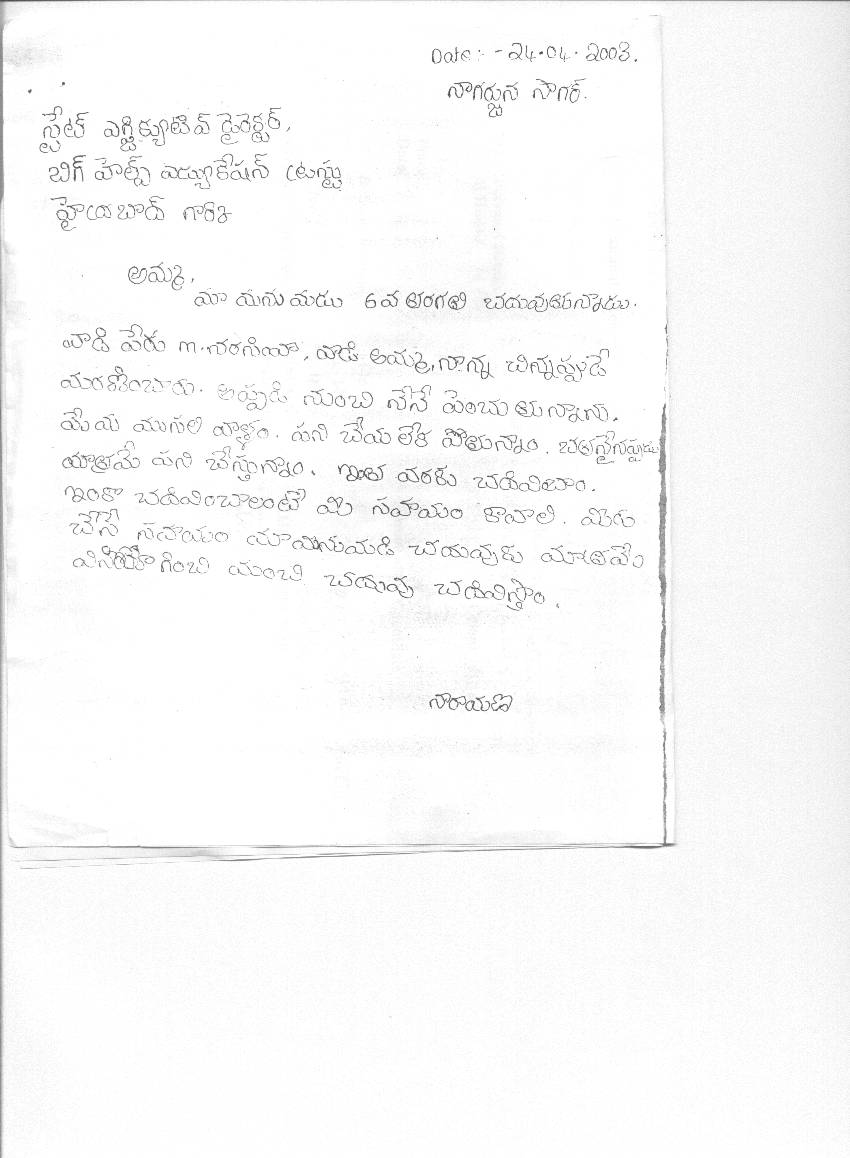 Date:- 24.04.2003.
నాగార్జున సాగర్.
స్టేట్ ఎగ్జిక్యూటివ్ డైరెక్టర్,
బిగ్ హెల్ప్ ఎడ్యుకేషన్ ట్రస్టు
హైద్రాబాద్ గారికి
అమ్మ,
మా మనుమడు 6వ తరగతి చదువుతున్నాడు.
వాడి పేరు m.నరసింహా, వాడి అమ్మ, నాన్న చిన్నప్పుడే
మరణించారు. అప్పుడి నుంచి నేనే పెంచుతున్నాను.
మేము ముసలి వాళ్ళం. పని చేయలేక పోతున్నాం.
మాత్రమే పని చేస్తున్నాం. ఇంత వరకు చదివించాం.
ఇంకా చదివించాలంటే మీ సహాయం కావాలి. మీరు
చేసే సహాయం మా మనుమడి చదువుకు మాత్రమే
వినియోగించి మంచి చదువు చదివిస్తాం.
నారాయణ